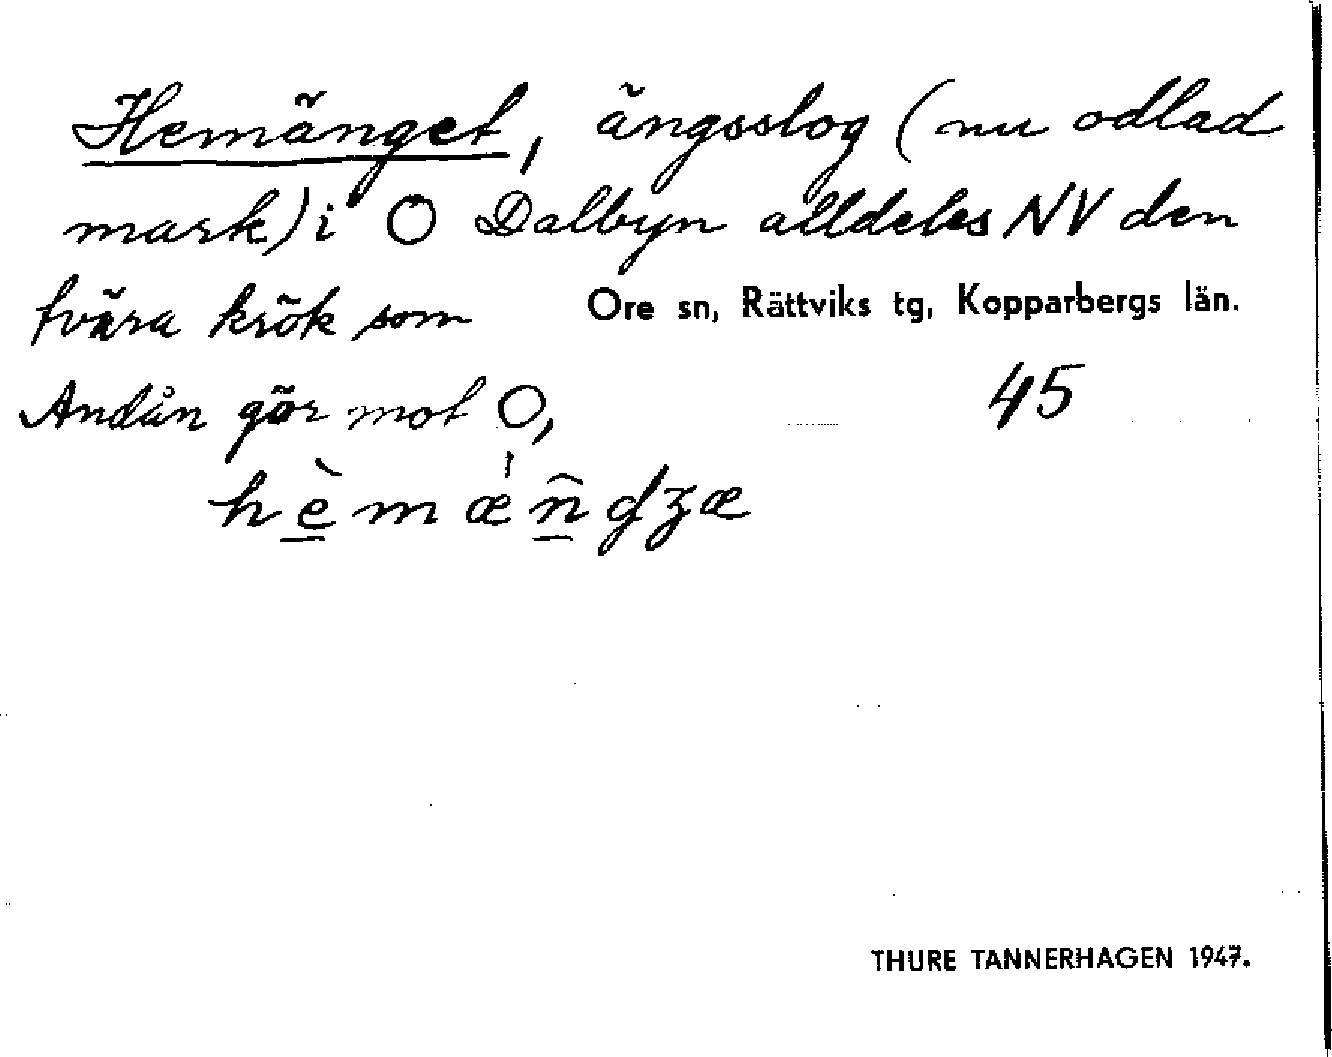 Hemänget, ängsslog (nu odlad
mark) i Ö Dalbyn alldeles NV den
tvära krök som
Ore sn, Rättviks tg, Kopparbergs län.
Andån gör mot O,
45
THURE TANNERHAGEN 1947.